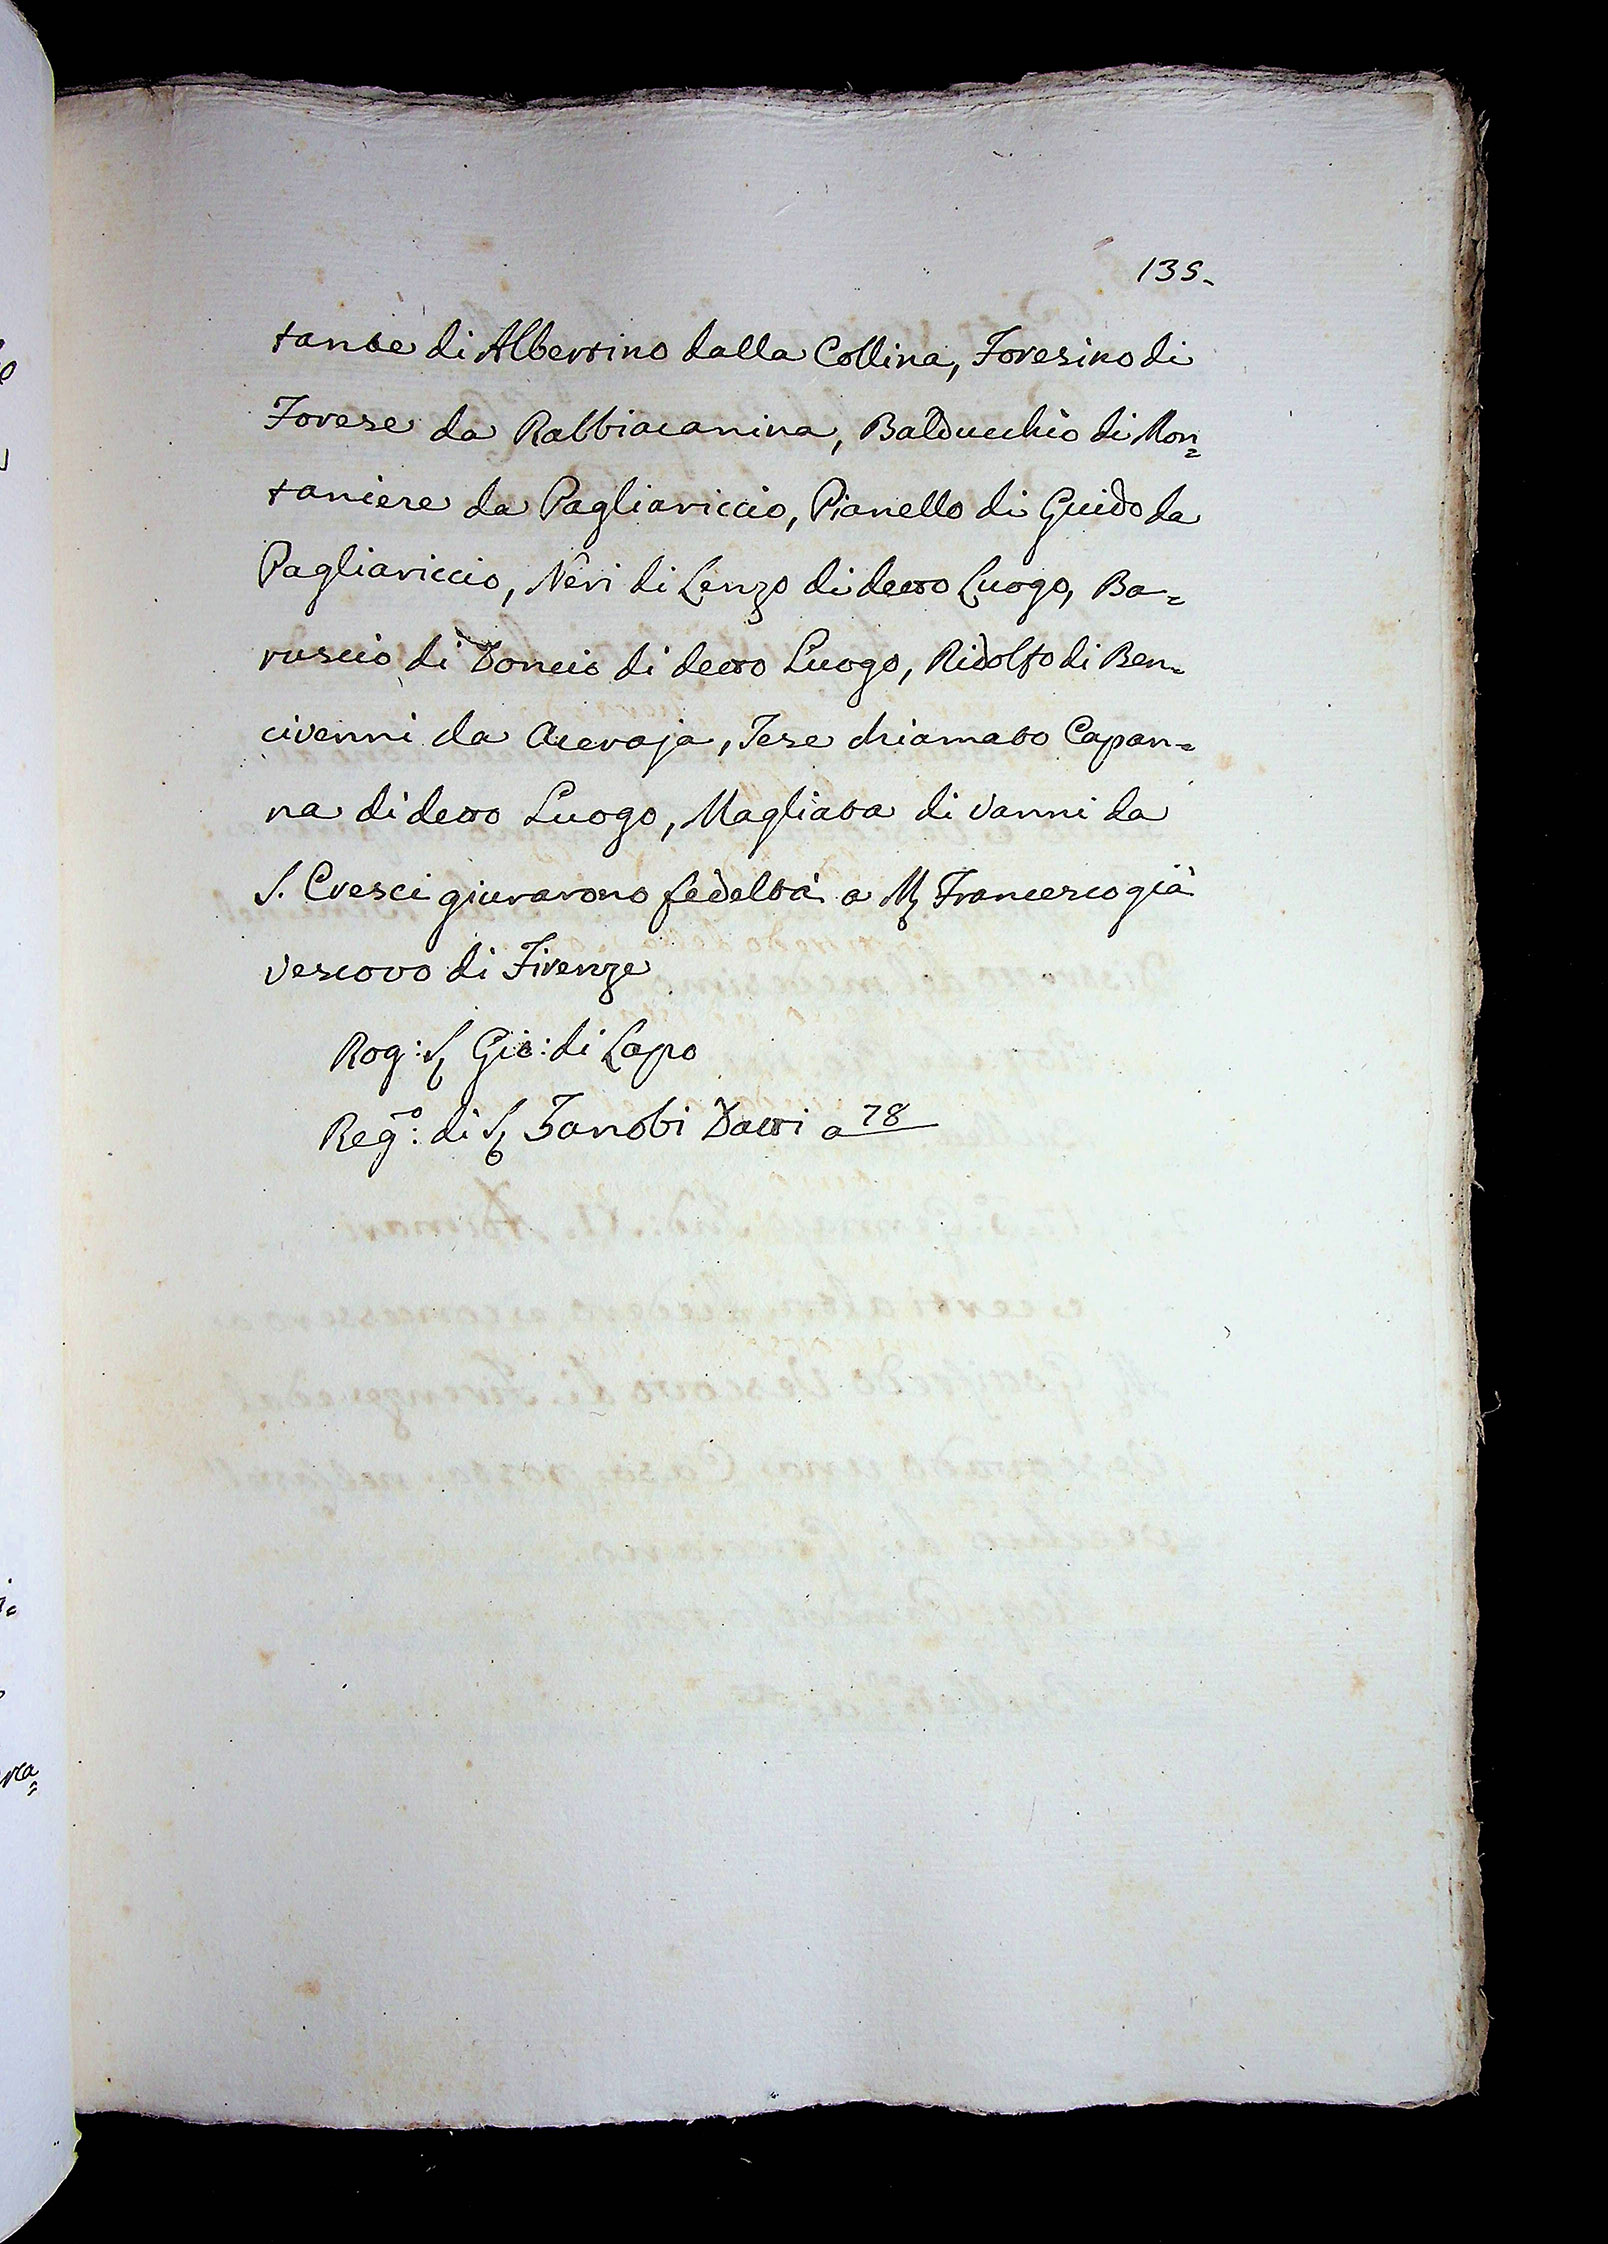 135.
tante di Albertino dalla Collina, Foresino di
Forese da Rabbiacanina, Balducchio di Mon=
taniere da Pagliariccio, Pianello di Guido da
Pagliariccio, Neri di Lenzo di detto Luogo, Ba=
ruscio di Doncio di detto Luogo, Ridolfo di Ben=
civenni da Aceraja, Tese chiamato Capan=
na di detto Luogo, Magliata di Vanni da
S. Cresci giurarono fedeltà a M Francesco già
Vescovo di Firenze
Rog: S Gio: di Lapo
Reg.o: di S Zanobi Datti a 78